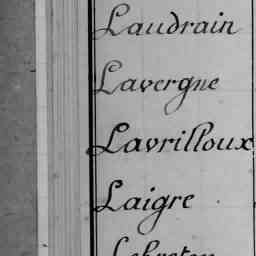 Laudrain
Lavergne
Lavrilloux
Laigre
Lebreton